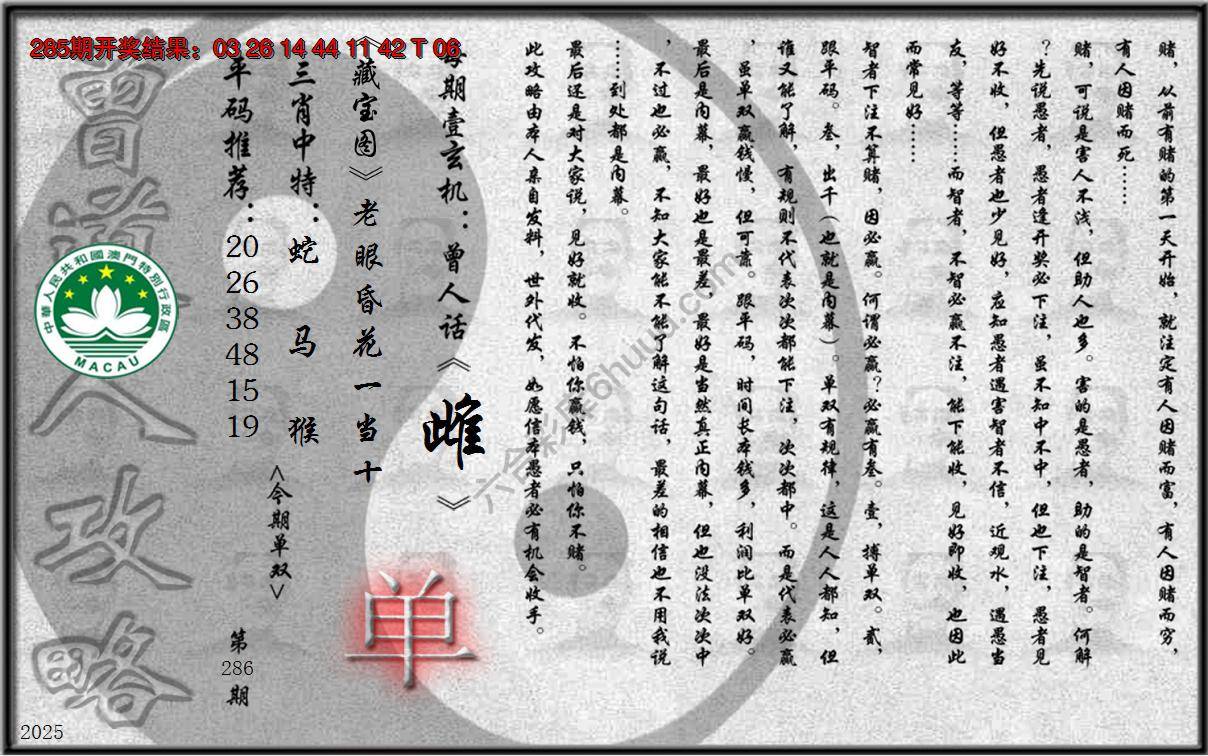 285期开奖结果：03 26 14 44 11 42 T 06
赌，从前有赌的第一天开始，就注定有人因赌而富，有人因赌而穷，
有人因赌而死……
赌，可说是害人不浅，但助人也多。害的是愚者，助的是智者。何解
？先说愚者，愚者逢开奖必下注，虽不知中不中，但也下注，愚者见
好不收，但愚者也少见好，应知愚者遇害智者不信，近观水，遇愚当
友，等等……而智者，不智必赢不注，能下能收，见好即收，也因此
而常见好……
智者下注不算赌，因必赢。何谓必赢？必赢有叁。壹，搏单双。贰，
跟平码。叁，出千（也就是内幕）。单双有规律，这是人人都知，但
谁又能了解，有规则不代表次次都能下注，次次都中。而是代表必赢
，虽单双赢钱慢，但可靠。跟平码，时间长本钱多，利润比单双好。
最后是内幕，最好也是最差，最好是当然真正内幕，但也没法次次中
，不过也必赢，不知大家能不能了解这句话，最差的相信也不用我说
……到处都是内幕。
最后还是对大家说，见好就收。不怕你赢钱，只怕你不赌。
此攻略由本人亲自发料，世外代发，如愿信本愚者必有机会收手。
每期壹玄机：曾人话《雌》
《藏宝图》老眼昏花一当十
三肖中特：蛇 马 猴
平码推荐：20 26 38 48 15 19
<今期单双>
单
第286期
曾道人攻略
中華人民共和國澳門特別行政區
MACAU
六合彩库6huuu.com
2025